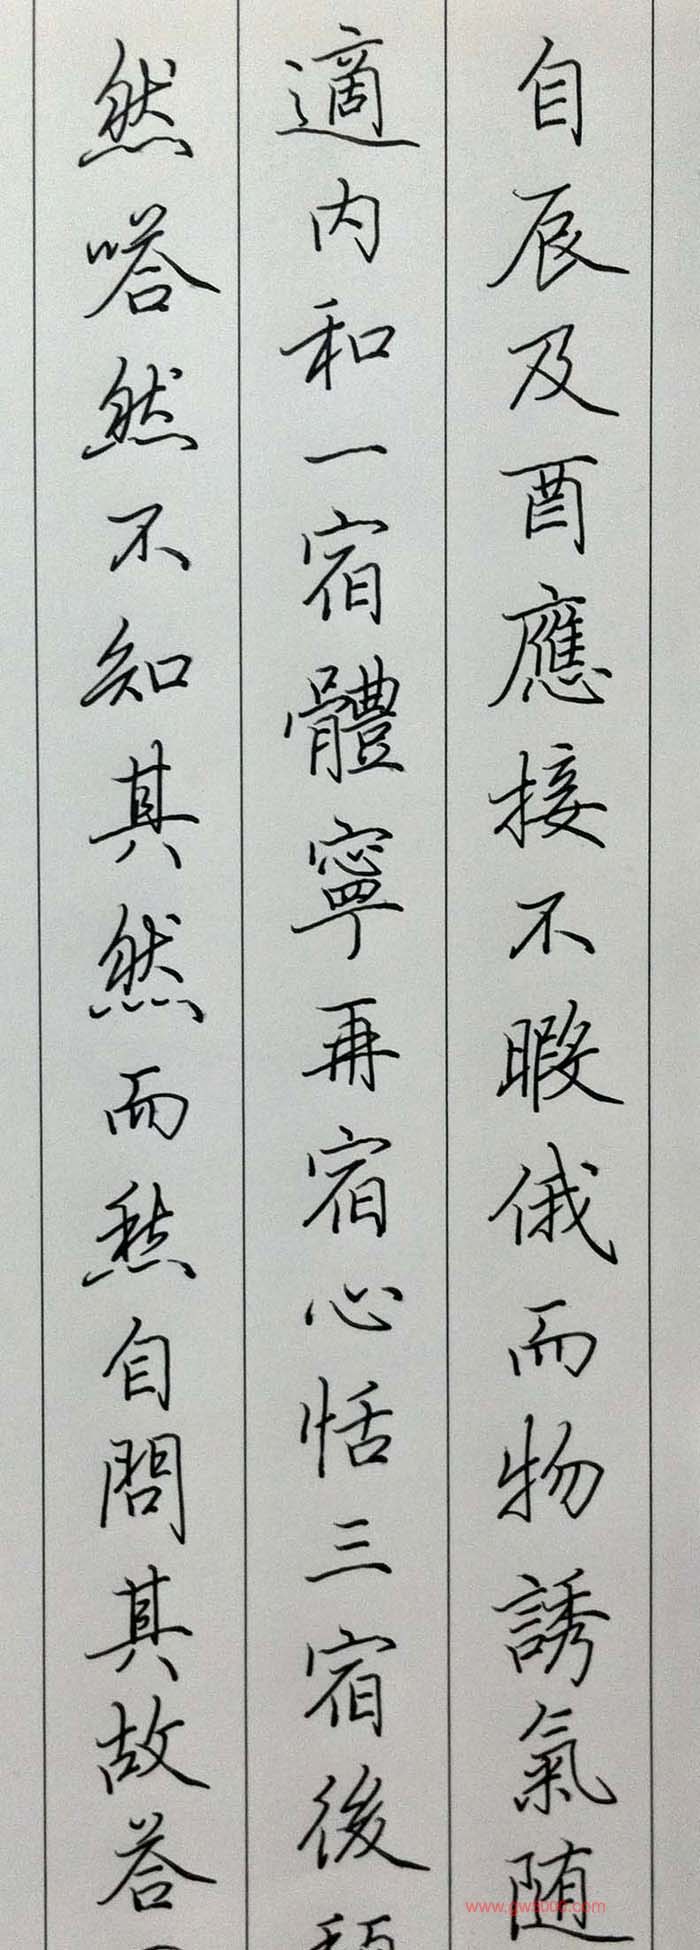 自辰及酉應接不暇俄而物誘氣随
適内和一宿體寧再宿心恬三宿後
然嗒然不知其然而然自問其故荅